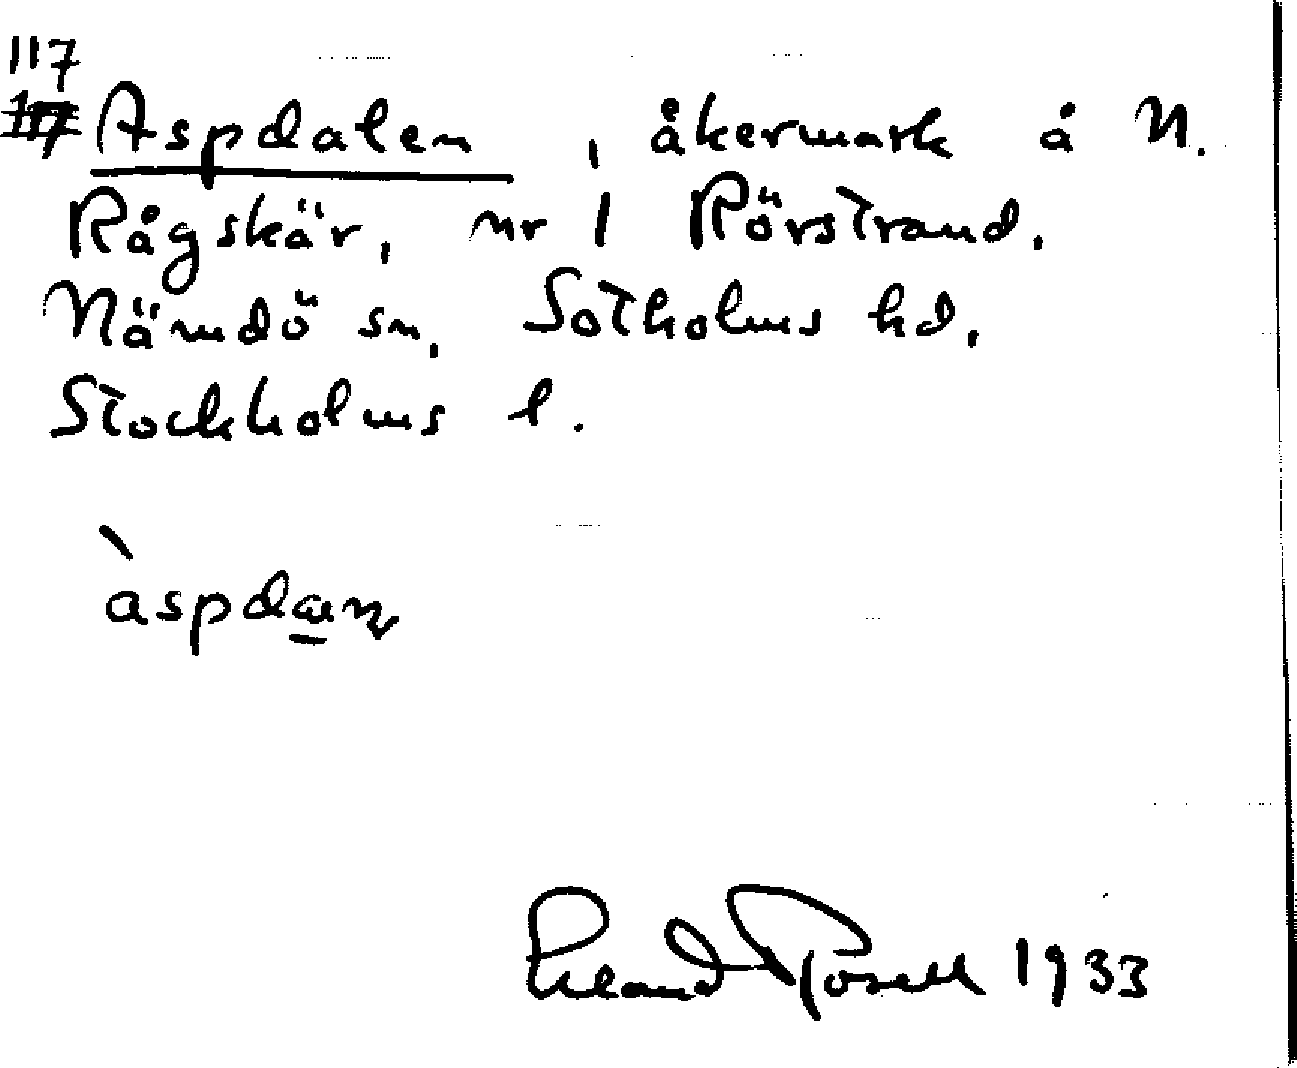 117
Aspdalen, åkermark å N.
Rågskär, nr 1 Rörstrand.
Nämdö sn, Sotholms hd,
Stockholms l.
Rosell 1933